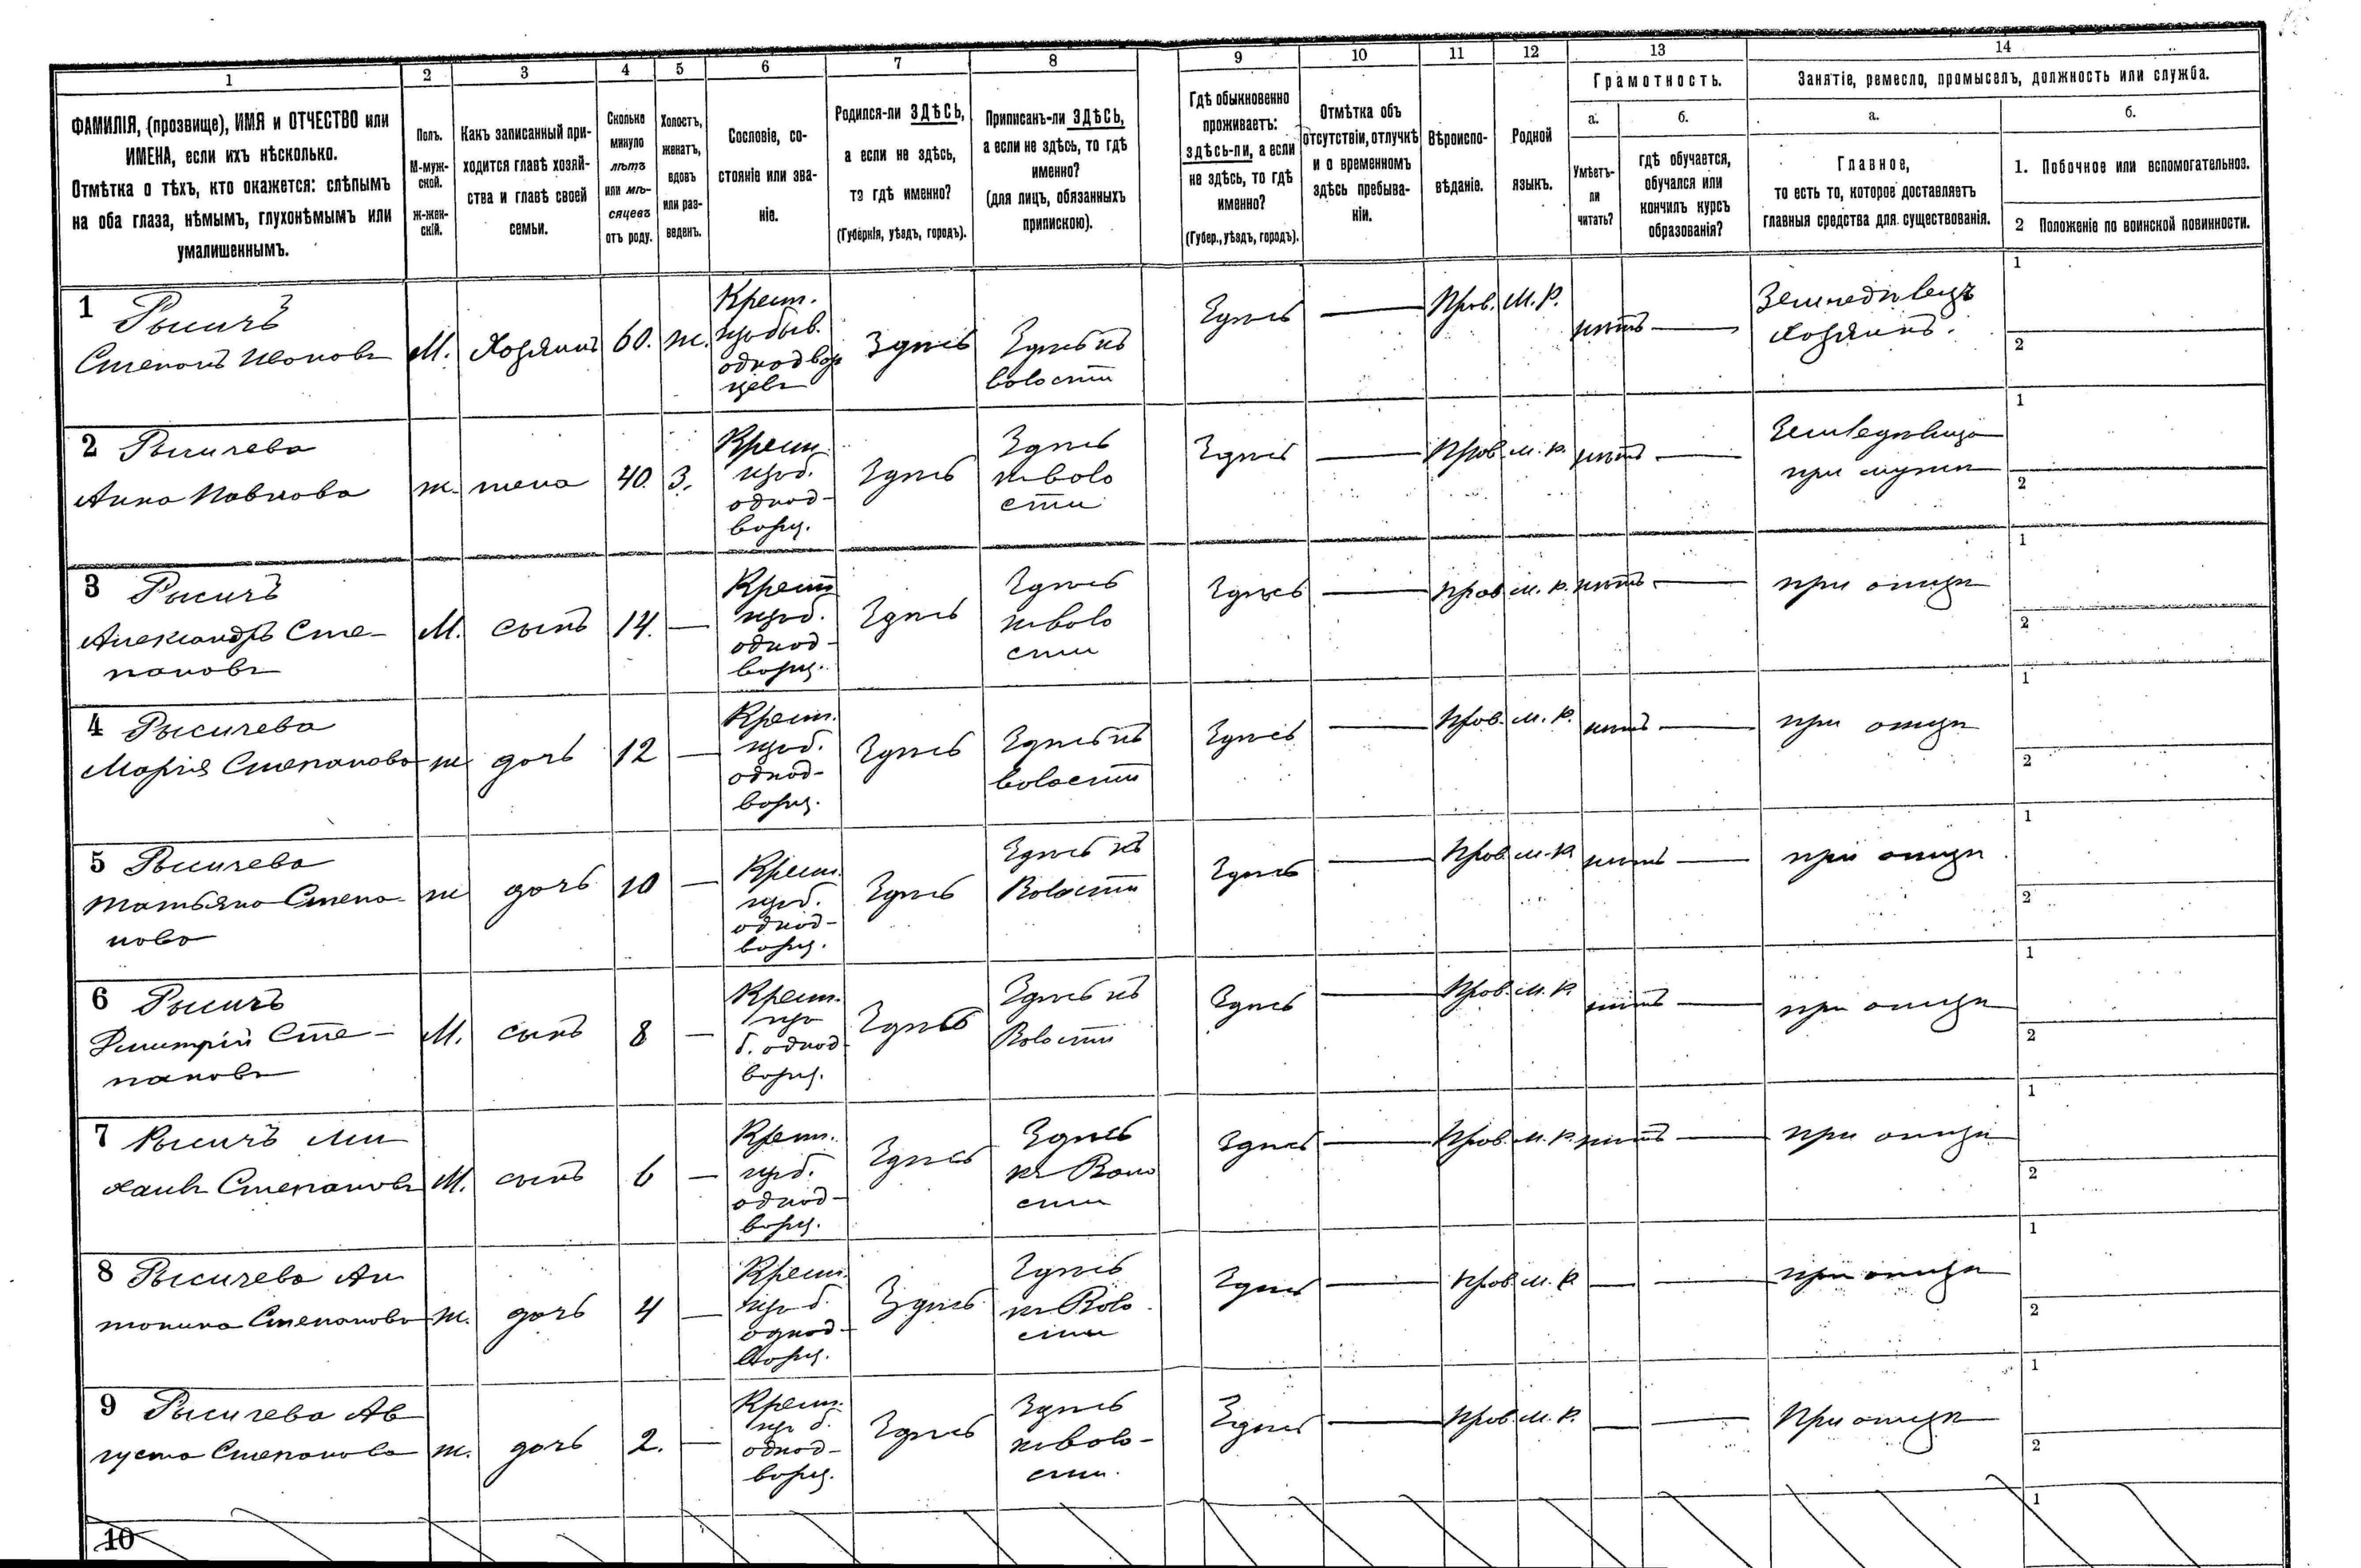 1 2 3 4 5 6 7 8 9 10 11 12 13 14
ФАМИЛІЯ, (прозвище), ИМЯ и ОТЧЕСТВО или
ИМЕНА, если ихъ нѣсколько.
Отмѣтка о тѣхъ, кто окажется: слѣпымъ
на оба глаза, нѣмымъ, глухонѣмымъ или
умалишеннымъ.
Полъ.
М-муж-
ской.
Ж-жен-
скій.
Какъ записанный при-
ходится главѣ хозяй-
ства и главѣ своей
семьи.
Сколько
минуло
лѣтъ
или мѣ-
сяцевъ
отъ роду.
Холостъ,
женатъ,
вдовъ
или раз-
веденъ.
Сословіе, со-
стояніе или зва-
ніе.
Родился-ли ЗДѢСЬ,
а если не здѣсь,
то гдѣ именно?
(Губернія, уѣздъ, городъ).
Приписанъ-ли ЗДѢСЬ,
а если не здѣсь, то гдѣ
именно?
(для лицъ, обязанныхъ
припискою).
Гдѣ обыкновенно
проживаетъ:
здѣсь-ли, а если
не здѣсь, то гдѣ
именно?
(Губер., уѣздъ, городъ).
Отмѣтка объ
отсутствіи, отлучкѣ
и о временномъ
здѣсь пребыва-
ніи.
Вѣроиспо-
вѣданіе.
Родной
языкъ.
Грамотность.
а.
Умѣетъ-
ли
читать?
б.
гдѣ обучается,
обучался или
кончилъ курсъ
образованія?
Занятіе, ремесло, промыселъ, должность или служба.
а.
Главное,
то есть то, которое доставляетъ
главныя средства для существованія.
б.
1. Побочное или вспомогательное.
2 Положеніе по воинской повинности.
1 Рысичъ
Степанъ Ивановъ
М. Хозяинъ 60. ж.
Крест.
изъ быв.
однодвор
цевъ
Здѣсь
Здѣсь къ
волости
Здѣсь — Пров. М. Р. нѣтъ —
Земледѣлецъ
Хозяинъ.
1
2
2 Рысичева
Анна Павлова
ж. жена 40. З.
Крест.
из б.
однод-
ворц.
Здѣсь
Здѣсь
къ воло
сти
Здѣсь — Пров. м. р. нѣтъ —
Земледѣлица
при мужѣ
1
2
3 Рысичъ
Александръ Сте-
пановъ
М. сынъ 14. —
Крест
из б.
однод-
ворц.
Здѣсь
Здѣсь
къ воло
сти
Здѣсь — Пров м. р. нѣтъ —
при отцѣ
1
2
4 Рысичева
Марія Степанова
ж дочь 12 —
Крест.
из б.
однод-
ворц.
Здѣсь
Здѣсь къ
волости
Здѣсь — Пров. м. р. нѣтъ —
при отцѣ
1
2
5 Рысичева
Татьяна Степа-
нова
ж дочь 10 —
Крест.
из б.
однод-
ворц.
Здѣсь
Здѣсь къ
Волости
Здѣсь — Пров. м. р нѣтъ —
при отцѣ
1
2
6 Рысичъ
Дмитрій Сте-
пановъ
М. сынъ 8 —
Крест.
из
б. однод-
ворц.
Здѣсь
Здѣсь къ
Волости
Здѣсь — Пров. м. р нѣтъ —
при отцѣ
1
2
7 Рысичъ Ми
хаилъ Степановъ
М. сынъ 6 —
Крест.
из б.
однод-
ворц.
Здѣсь
Здѣсь
къ Воло
сти
Здѣсь — Пров. м. р. нѣтъ —
при отцѣ
1
2
8 Рысичева Ан
тонина Степанова
ж. дочь 4 —
Крест.
из б.
однод-
ворц.
Здѣсь
Здѣсь
къ Воло-
сти
Здѣсь — Пров м. р — —
при отцѣ
1
2
9 Рысичева Ав
густа Степанова
ж. дочь 2. —
Крест.
из б.
однод-
ворц.
Здѣсь
Здѣсь
къ воло-
сти.
Здѣсь — Пров. м. р. — —
При отцѣ
1
2
10
1